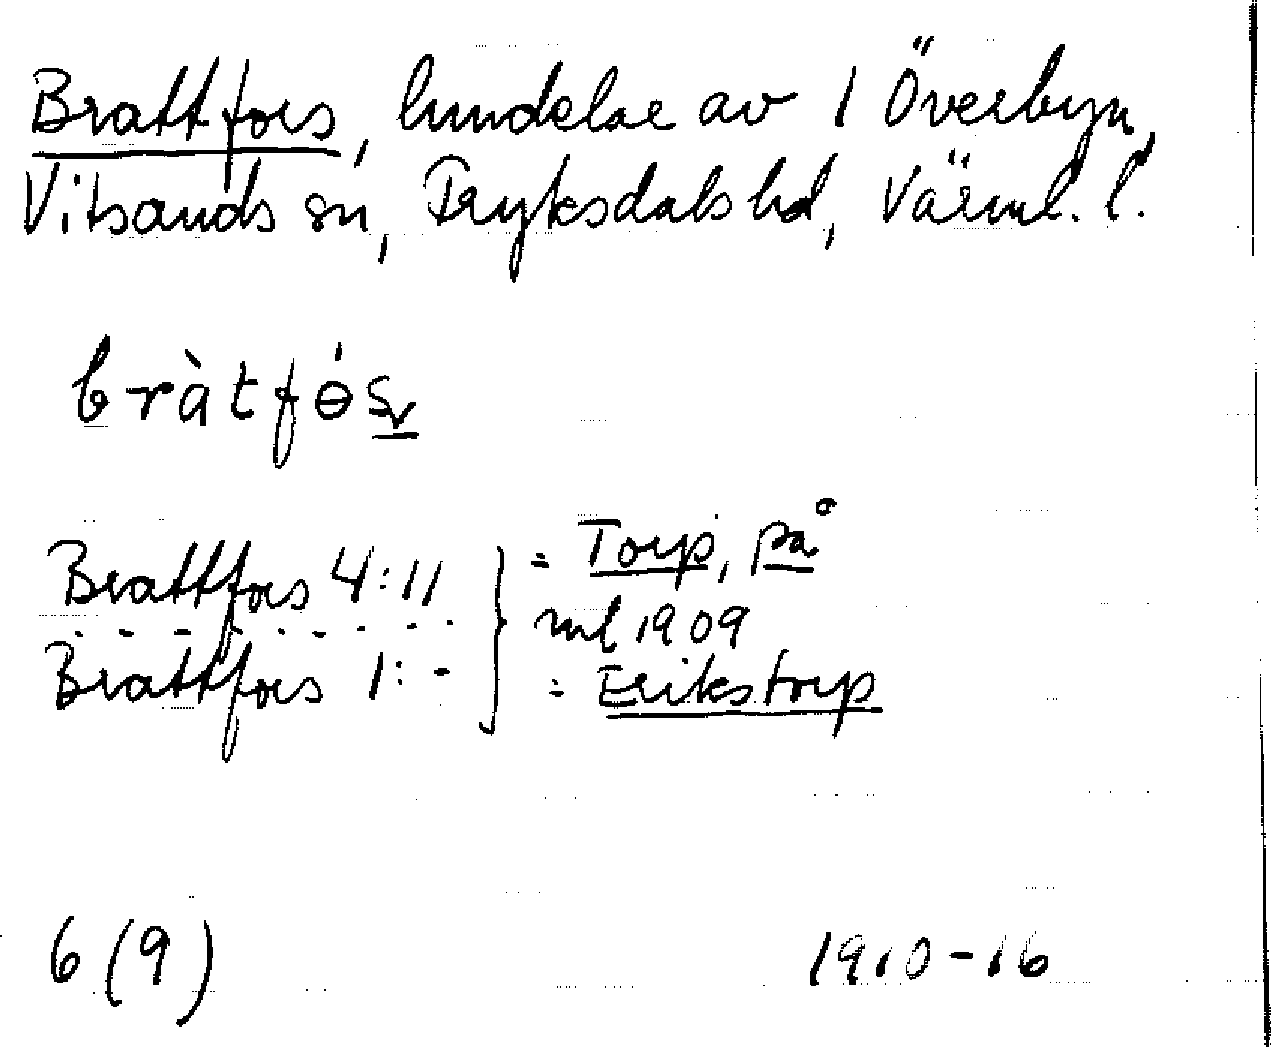 Brattfors, lundelar av 1 Överbyn,
Vitsands sn, Fryksdals hd, Värml. l.
bràtfɵ́s̬
Brattfors 4:11
Brattfors 1:-
= Torp, på
ml 1909
= Erikstorp
6 (9)
1910-16